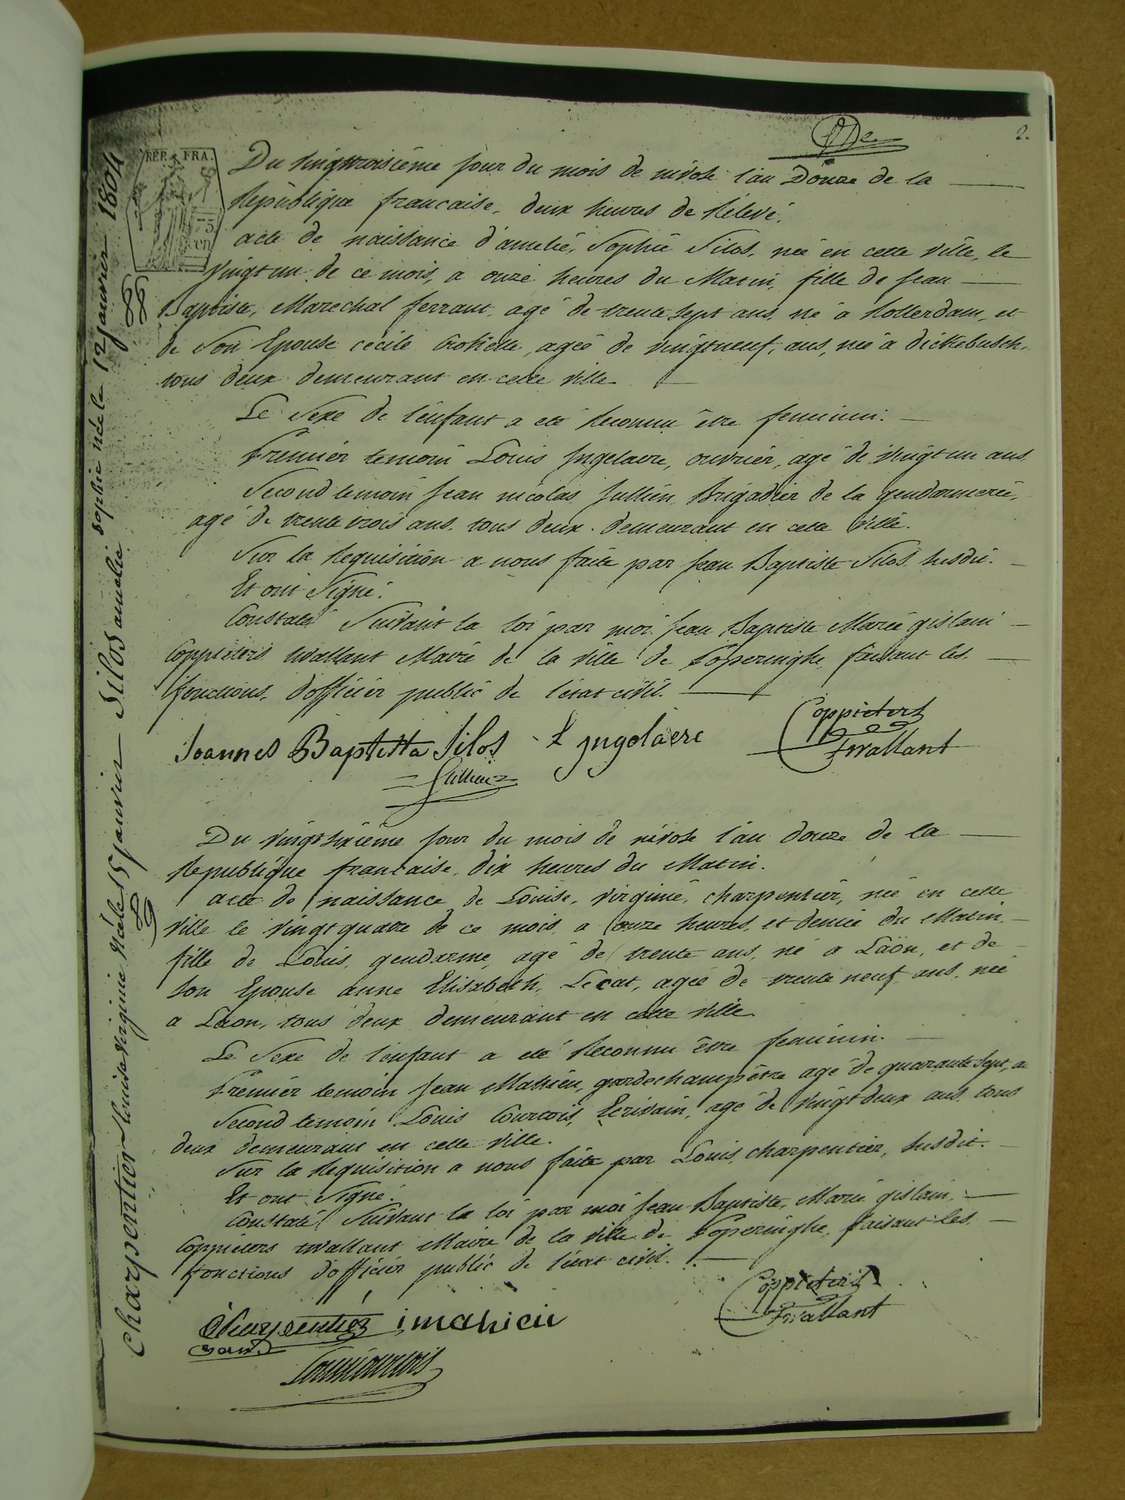 2.
REP. FRA.
75
cen
Du vingttroisième jour du mois de nivose l'an Douze de la
République francaise, deux heures de Relevé.
acte de naissance d'amelie, Sophie Silos, née en cette ville, le
vingt un de ce mois, a onze heures du Matin, fille de jean
Baptiste, Marechal ferrant, agé de trente sept ans, né a Rotterdam, et
de Son Epouse cécile, agée de vingtneuf, ans, née a dickebusch,
tous deux demeurant en cette ville.
Le Sexe de l'enfant a eté Reconnu être feminin.
Premier temoin Louis Ingelaere, ouvrier, agé de vingt un ans
Second temoin jean nicolas Jullien, Brigadier de la gendarmerie,
agé de trente trois ans, tous deux demeurant en cette ville.
Sur la Requisition a nous faite par jean Baptiste Silos susdit.
Et ont Signé.
Constaté Suivant la loi par moi jean Baptiste Marie gislain
Coppieters wallant Maire de la ville de Poperinghe, faisant les
fonctions, d'officier public de l'etat civil.
Joannes Baptista Silos L Ingelaere Coppieters
Jullien Twallant
Du vingtsixième jour du mois de nivose l'an douze de la
Republique francaise, dix heures du Matin.
acte de naissance de Louise, virginie, charpentier, née en cette
ville le vingt quatre de ce mois, a onze heures et demie du Matin,
fille de Louis, gendarme, agé de trente ans, né a Laon, et de
Son Epouse anne Elisabeth, Lecat, agée de trente neuf ans, née
a Laon, tous deux demeurant en cette ville.
Le Sexe de l'enfant a eté Reconnu être feminin.
Premier temoin jean Mahieu, gardechampêtre agé de quarante sept, a
Second temoin Louis Courtois, Ecrivain, agé de vingt deux ans, tous
deux demeurant en cette ville.
Sur la Requisition a nous faite par Louis, charpentier, susdit.
Et ont Signé.
Constaté Suivant la loi par moi jean Baptiste, Marie gislain,
Coppieters wallant Maire de la ville de Poperinghe, faisant les
fonctions d'officier public de l'etat civil.
Charpentier j mahieu Coppieters
Twallant
Louis Courtois
Silos amelie sophie née le 12 janvier 1804
Charpentier Louise virginie née le 15 janvier